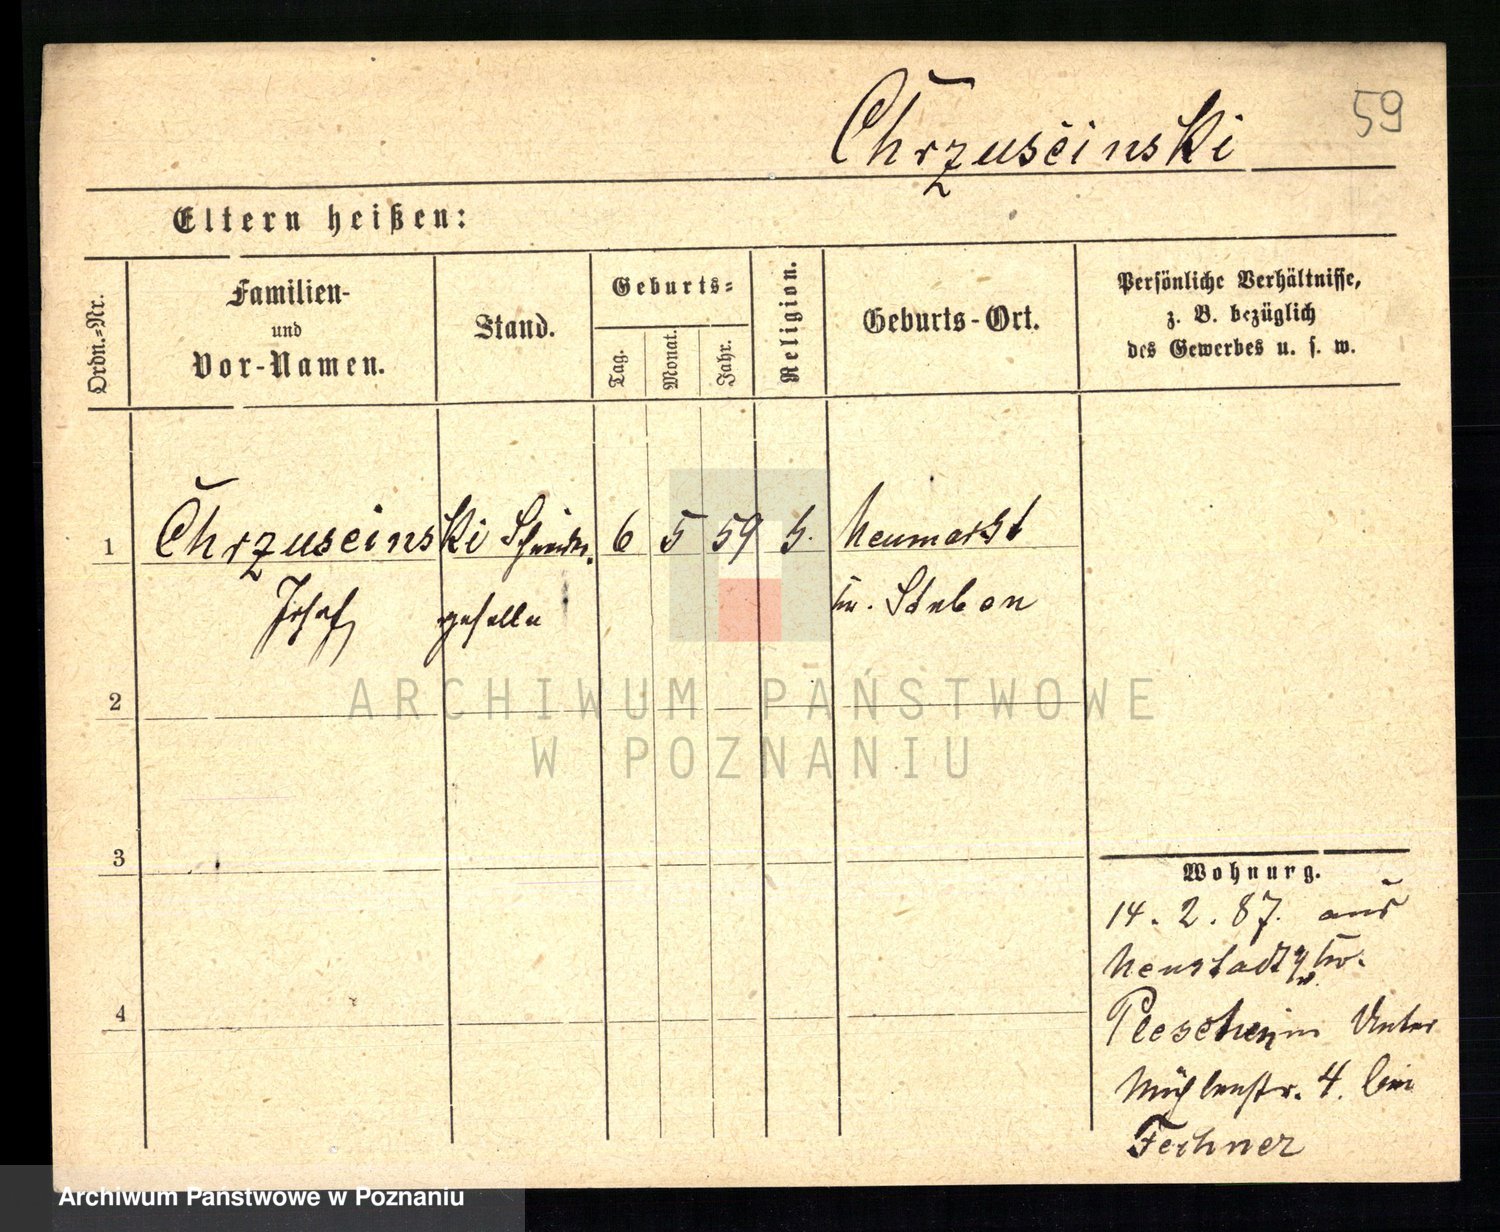 59
Chrzuscinski
Eltern heißen:
Ordn.-Nr.
Familien-
und
Vor-Namen.
Stand.
Geburts-
Tag.
Monat.
Jahr.
Religion.
Geburts-Ort.
Persönliche Verhältnisse,
z. B. bezüglich
des Gewerbes u. s. w.
1 Chrzuscinski 6 5 59 Neumarkt
Josef geselle
2
3
4
Wohnung.
14. 2. 87. aus
Neustadt
Pleschen Unter
Mühlenstr. 4. bei
Fechner
ARCHIWUM PAŃSTWOWE
W POZNANIU
Archiwum Państwowe w Poznaniu